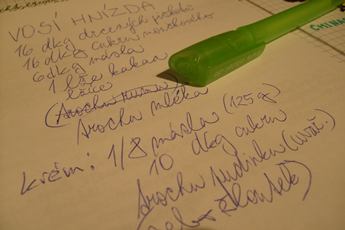 VOSÍ HNÍZDA
16 dkg drcených piškotů
16 dkg cukru moučkového
6 dkg másla
1 lžíce kakaa
lžíce
(trochu rumu)
trochu mléka
krém: 1/8 másla (125 g)
10 dkg cukru
trochu pudinku (uvař.)
žloutek)
CHINA